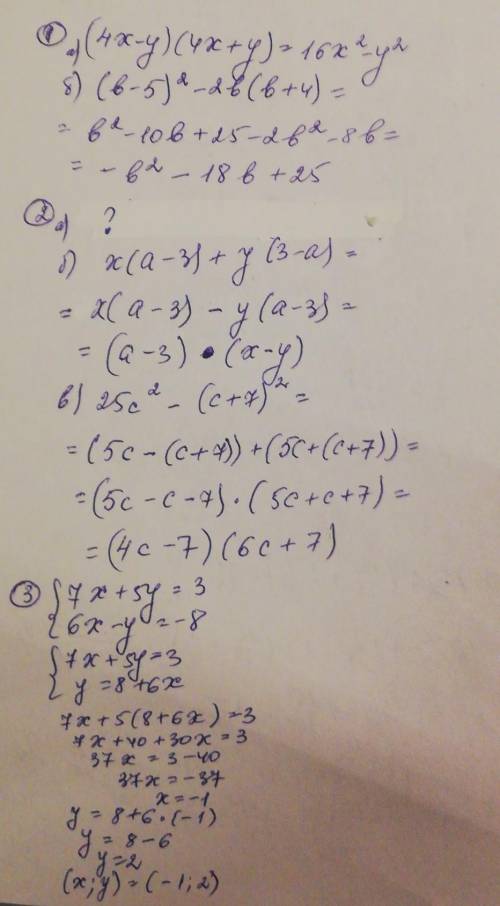 ① а) (4x-y)(4x+y)=16x²-y²
б) (b-5)²-2b(b+4)=
= b²-10b+25-2b²-8b=
= -b²-18b+25
② а) ?
б) x(a-3)+y(3-a)=
= x(a-3)-y(a-3)=
= (a-3)•(x-y)
в) 25c²-(c+7)²=
=(5c-(c+7))+(5c+(c+7))=
=(5c-c-7)·(5c+c+7)=
=(4c-7)(6c+7)
③ {7x+5y=3
6x-y=-8
{7x+5y=3
y=8+6x
7x+5(8+6x)=3
7x+40+30x=3
37x=3-40
37x=-37
x=-1
y=8+6·(-1)
y=8-6
y=2
(x;y)=(-1;2)